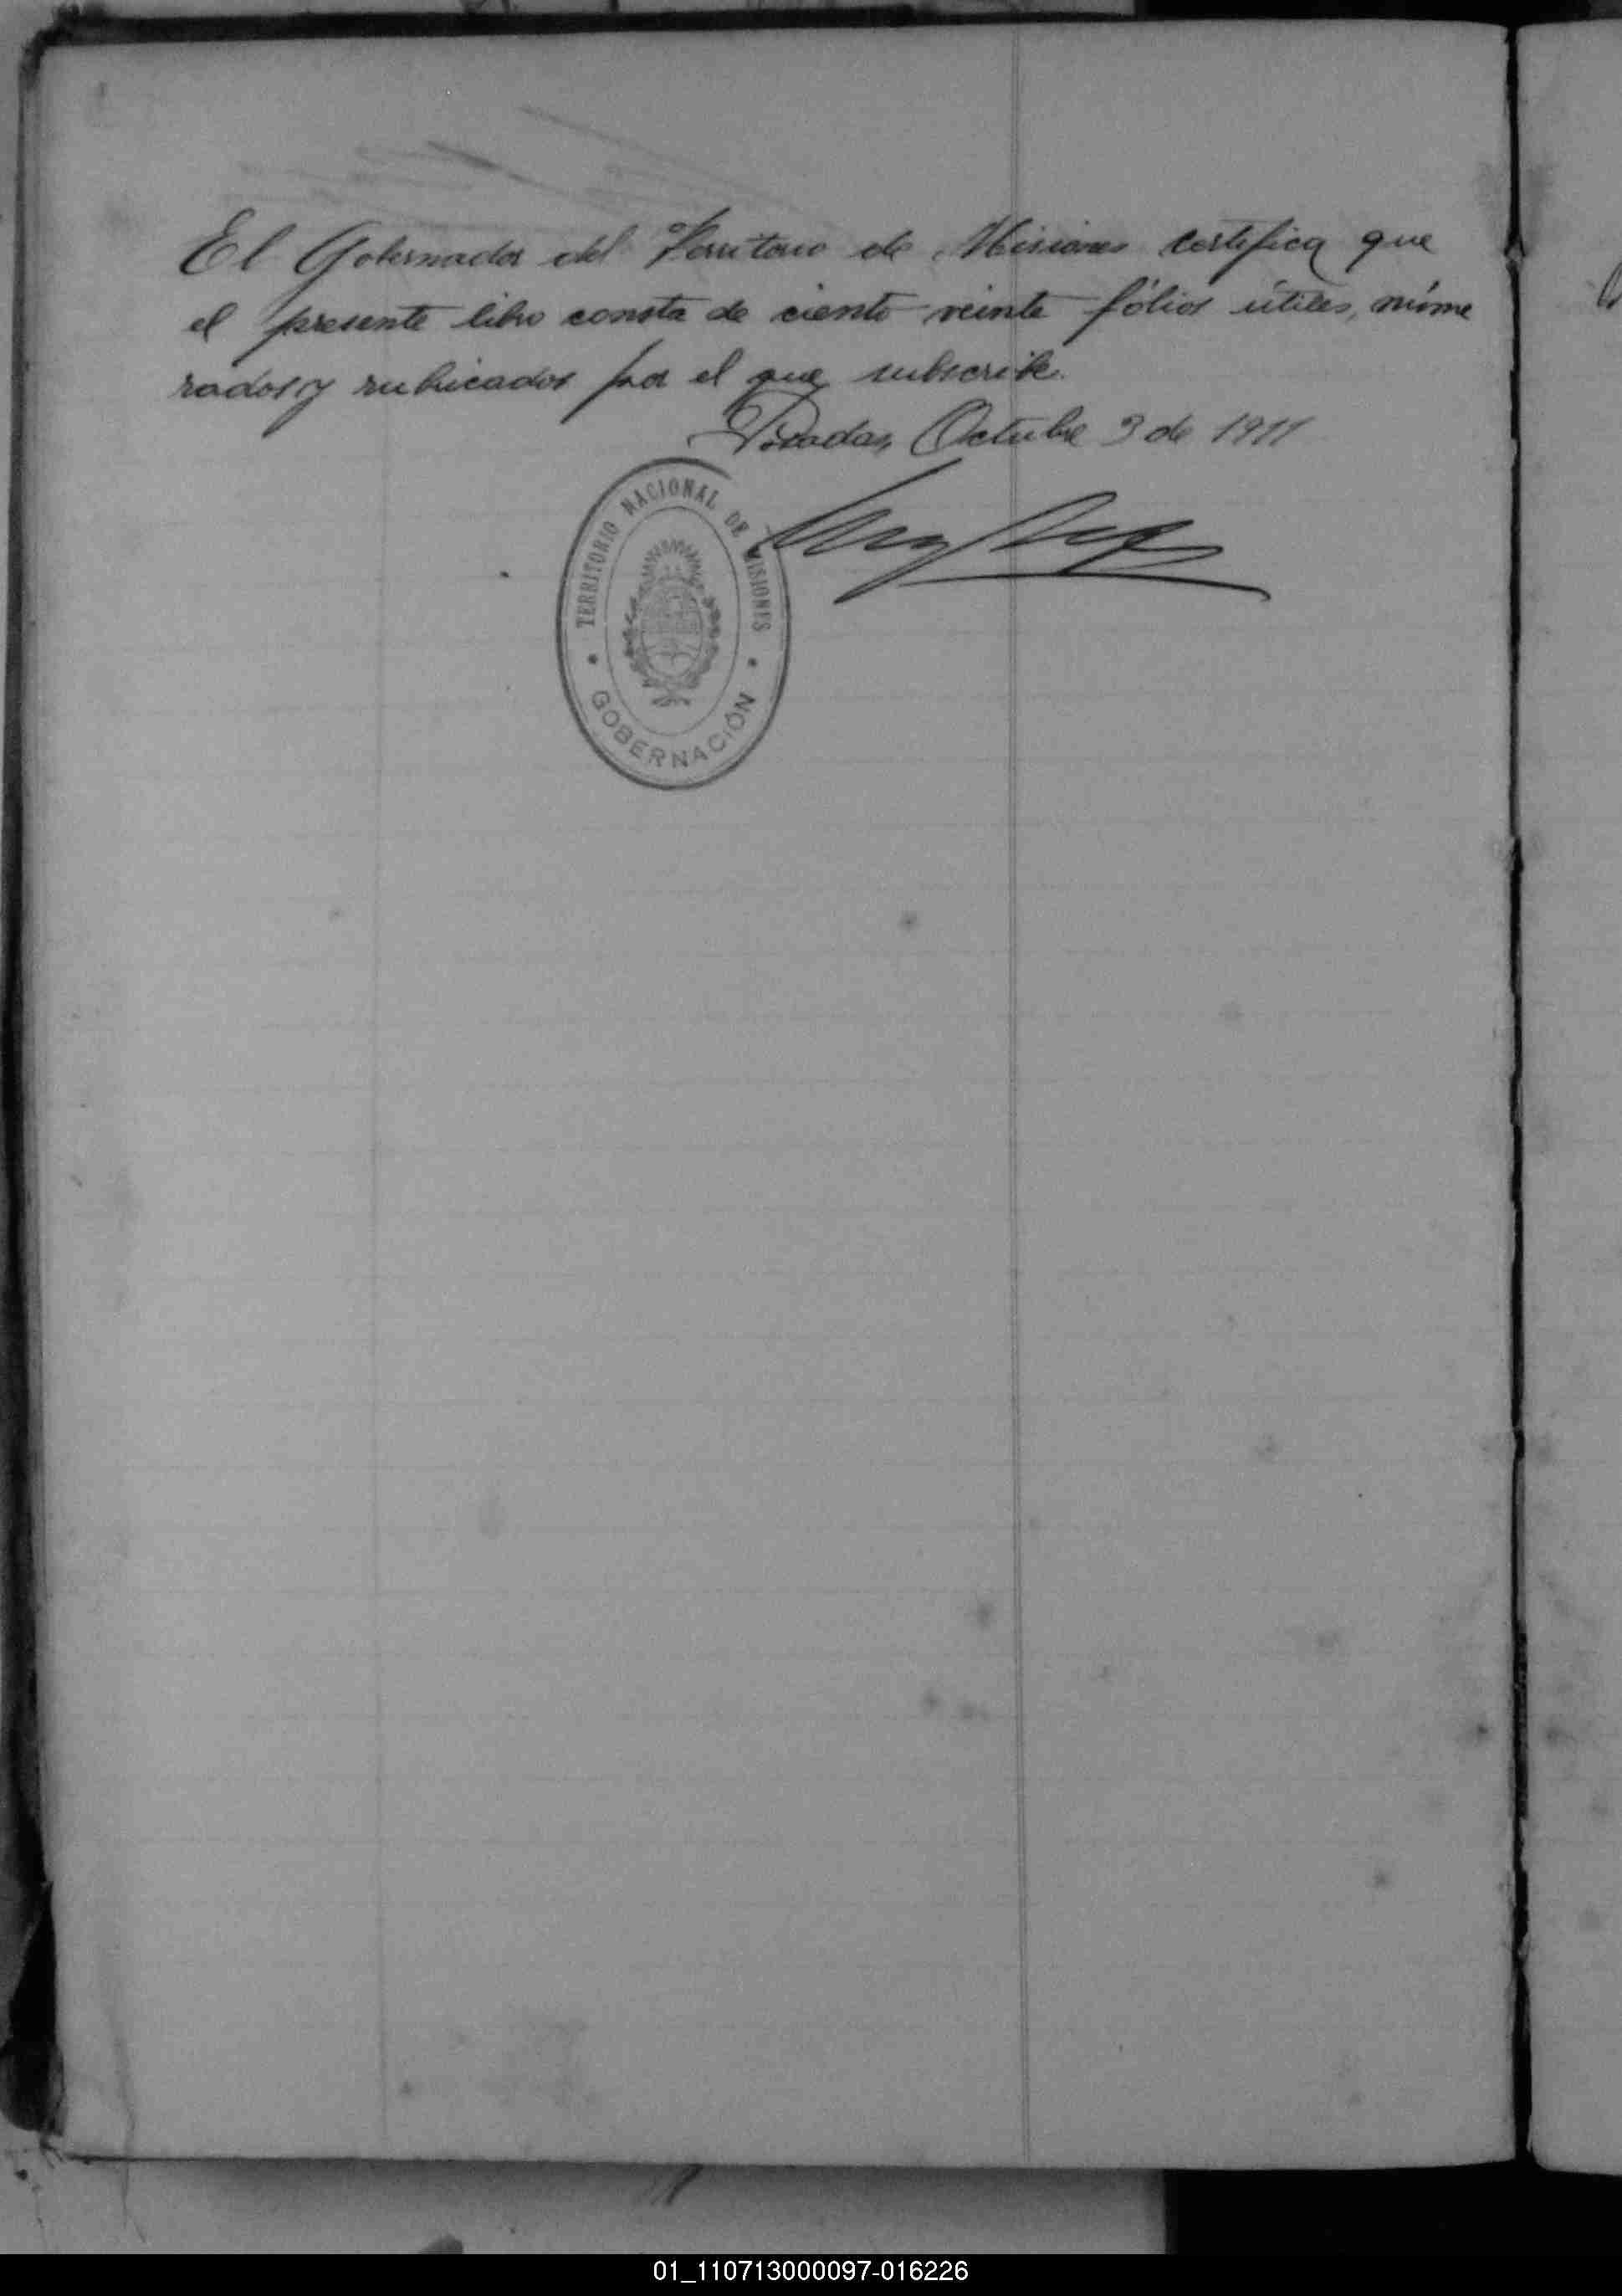 El Gobernador del Territorio de Misiones certifica que
el presente libro consta de ciento veinte fólios útiles, núme
rados y rubricados por el que subscribe.
Posadas, Octubre 3 de 1911
TERRITORIO NACIONAL DE MISIONES
GOBERNACIÓN
01_110713000097-016226